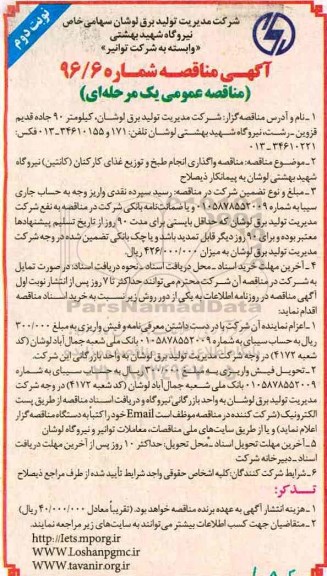 نوبت دوم
شرکت مدیریت تولید برق لوشان سهامی خاص
نیروگاه شهید بهشتی
«وابسته به شرکت توانیر»
آگهی مناقصه شماره ۹۶/۶
(مناقصه عمومی یک مرحله‌ای)
۱ـ نام و آدرس مناقصه‌گزار: شرکت مدیریت تولید برق لوشان، کیلومتر ۹۰ جاده قدیم
قزوین ـ رشت، نیروگاه شهید بهشتی لوشان تلفن: ۱۷۱ و ۳۴۶۱۰۱۵۵-۰۱۳ فکس:
۳۴۶۱۰۲۲۱-۰۱۳
۲ـ موضوع مناقصه: مناقصه واگذاری انجام طبخ و توزیع غذای کارکنان (کانتین) نیروگاه
شهید بهشتی لوشان به پیمانکار ذیصلاح
۳ـ مبلغ و نوع تضمین شرکت در مناقصه: رسید سپرده نقدی واریز وجه به حساب جاری
سیبا به شماره ۰۱۰۵۸۷۸۵۵۲۰۰۹ و یا ضمانت‌نامه بانکی شرکت در مناقصه به نفع شرکت
مدیریت تولید برق لوشان که حداقل بایستی برای مدت ۹۰ روز از تاریخ تسلیم پیشنهادها
معتبر بوده و برای ۹۰ روز دیگر قابل تمدید باشد و یا چک بانکی تضمین شده در وجه شرکت
مدیریت تولید برق لوشان به میزان ۴۲۶/۰۰۰/۰۰۰ ریال.
۴ـ آخرین مهلت خرید اسناد ـ محل دریافت اسناد ـ نحوه دریافت اسناد: در صورت تمایل
به شرکت در مناقصه آن شرکت محترم می‌تواند حداکثر تا ۷ روز پس از انتشار نوبت اول
آگهی مناقصه در روزنامه اطلاعات به یکی از دو روش زیر نسبت به خرید اسناد مناقصه
اقدام نماید:
۱ـ اعزام نماینده آن شرکت با در دست داشتن معرفی‌نامه و فیش واریزی به مبلغ ۳۰۰/۰۰۰
ریال به حساب سیبای به شماره ۰۱۰۵۸۷۸۵۵۲۰۰۹ بانک ملی شعبه جمال‌آباد لوشان (کد
شعبه ۴۱۷۲) در وجه شرکت مدیریت تولید برق لوشان به واحد بازرگانی این شرکت.
۲ـ تحویل فیش واریزی به مبلغ ریال به حساب سیبای به شماره
۰۱۰۵۸۷۸۵۵۲۰۰۹ بانک ملی شعبه جمال‌آباد لوشان (کد شعبه ۴۱۷۲) در وجه شرکت
مدیریت تولید برق لوشان به واحد بازرگانی نیروگاه و دریافت اسناد مناقصه از طریق پست
الکترونیک (شرکت کننده در مناقصه موظف است Email خود را کتباً به دستگاه مناقصه گزار
اعلام نماید) و یا از طریق سایت‌های ملی مناقصات، معاملات توانیر و نیروگاه لوشان
۵ـ آخرین مهلت تحویل اسناد ـ محل تحویل: حداکثر ۱۰ روز پس از آخرین مهلت دریافت
اسناد ـ دبیرخانه شرکت
۶ـ شرایط شرکت کنندگان: کلیه اشخاص حقوقی واجد شرایط تأیید شده از طرف مراجع ذیصلاح
تذکر:
۱ـ هزینه انتشار آگهی به عهده برنده مناقصه خواهد بود. (تقریباً معادل ۴۰/۰۰۰/۰۰۰ ریال)
۲ـ متقاضیان جهت کسب اطلاعات بیشتر می‌توانند به سایت‌های زیر مراجعه نمایند.
http://Iets.mporg.ir
WWW.Loshanpgmc.ir
WWW.tavanir.org.ir
ParsNamadData